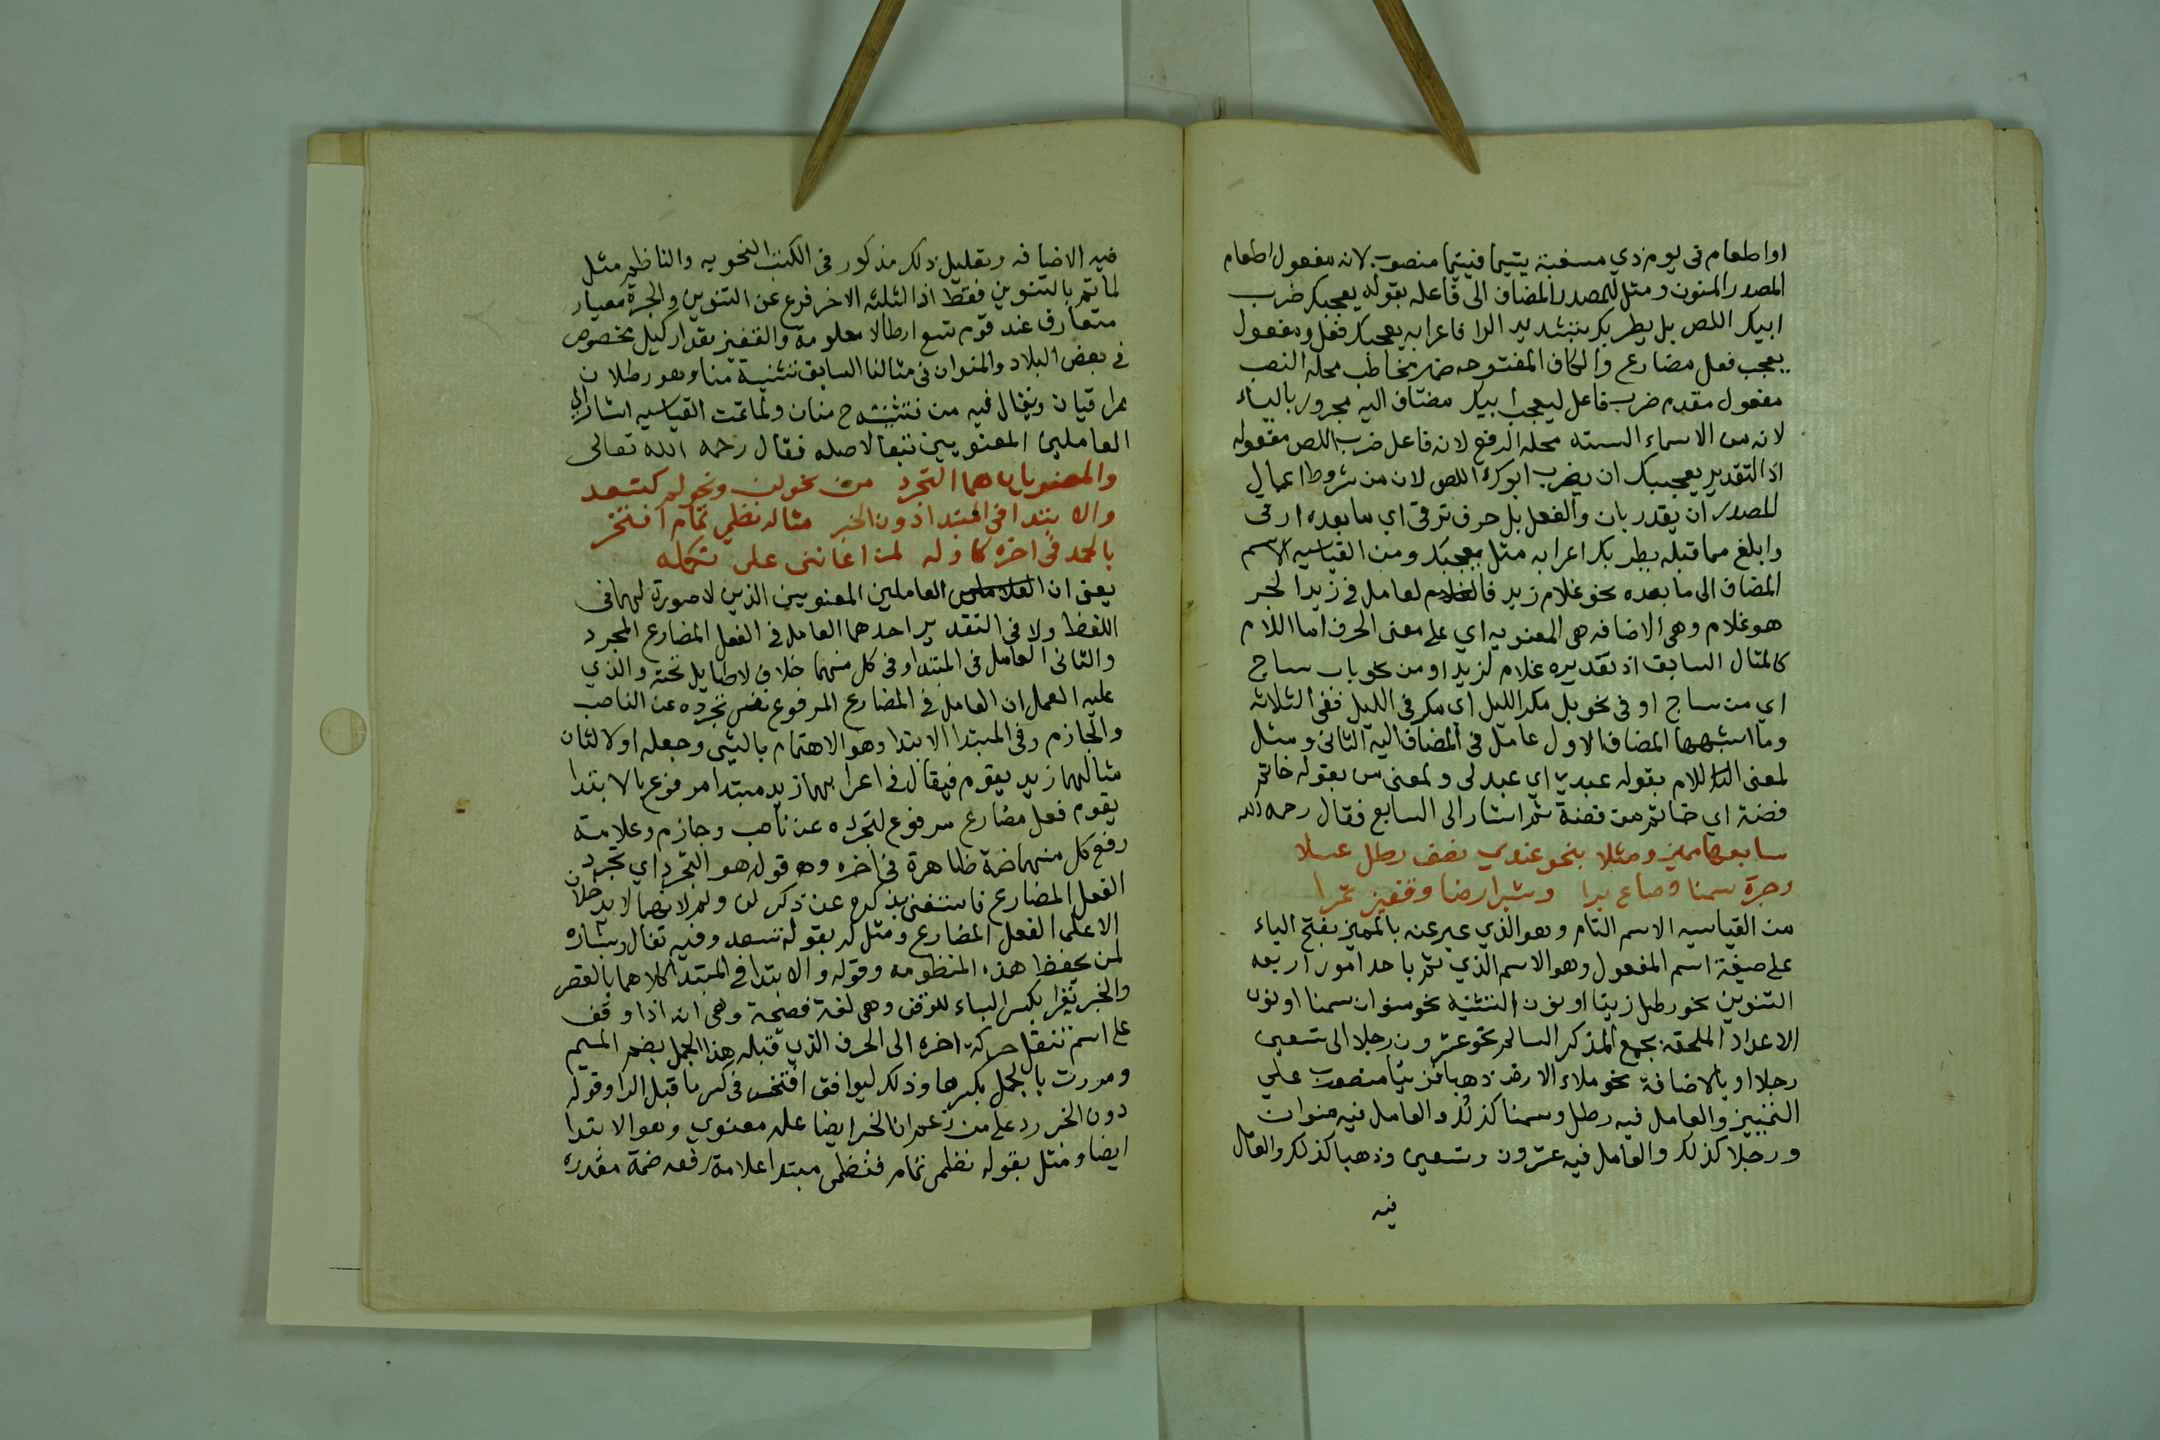 او اطعام في يوم ذي مسغبة يتيما فيتيما منصوب لانه مفعول اطعام
المصدر المنون ومثل للمصدر المضاف الى فاعله بقوله يعجبك ضرب
ابيك اللص بل يطربك بتشديد الرا فاعرابه يعجبك فعل ومفعول
يعجب فعل مضارع والكاف المفتوحه ضمير مخاطب محله النصب
مفعول مقدم ضرب فاعل ليعجب ابيك مضاف اليه مجرور بالياء
لانه من الاسماء السته محله الرفع لانه فاعل ضرب اللص مفعوله
اذ التقدير يعجبك ان يضرب ابوك اللص لان من شروط اعمال
المصدر ان يقدر بان والفعل بل حرف ترقي اي ما بعده ارقى
وابلغ مما قبله يطربك اعرابه مثل يعجبك ومن القياسيه الاسم
المضاف الى ما بعده نحو غلام زيد فالعامل في زيد الجر
هو غلام وهي الاضافه هي المعنويه اي على معنى الحرف اما اللام
كالمثال السابق اذ تقديره غلام لزيد او من نحو باب ساج
اي من ساج او في نحو بل مكر الليل اي مكر في الليل ففي الثلاثه
وما اشبهها المضاف الاول عامل في المضاف اليه الثاني ومثل
لمعنى اللام بقوله عبدي اي عبد لي ولمعنى من بقوله خاتم
فضة اي خاتم من فضة ثم اشار الى السابع فقال رحمه الله
سابعها مميز ومثلا بنحو عندي نصف رطل عسلا
وجرة سمنا وصاع برا وشبر ارضا وقفيز تمرا
من القياسيه الاسم التام وهو الذي عبر عنه بالمميز بفتح الياء
على صيغة اسم المفعول وهو الاسم الذي تم باحد امور اربعه
التنوين نحو رطل زيتا او نون التثنيه نحو منوان سمنا او نون
الاعداد الملحقه بجمع المذكر السالم نحو عشرون رجلا الى تسعين
رجلا او بالاضافة نحو ملاء الارض ذهبا فزيتا منصوب على
التمييز والعامل فيه رطل وسمنا كذلك والعامل فيه منوان
ورجلا كذلك والعامل فيه عشرون وتسعين وذهبا كذلك والعامل
فيه
فيه الاضافه وتعليل ذلك مذكور في الكتب النحويه والناظم مثل
لما تم بالتنوين فقط اذ الثلثه الاخر فرع عن التنوين والجرة معيار
متعارف عند قوم تسع ارطالا معلومة والقفيز مقدار كيل مخصوص
في بعض البلاد والمنوان في مثالنا السابق تثنية منا وهو رطلان
عراقيان ويقال فيه من فتثنيته ح منان ولما تمت القياسيه اشار الى
العاملين المعنويين تبعا لاصله فقال رحمه الله تعالى
والمعنويان هما التجرد من نحو لن ونحو لم كتسعد
والابتدا في المبتدا دون الخبر مثاله نظمي تمام افتخر
بالحمد في اخره كاوله لمن اعانني على تكمله
يعني ان العاملين المعنويين الذين لا صورة لهما في
اللفظ ولا في التقدير احدهما العامل في الفعل المضارع المجرد
والثاني العامل في المبتدا وفي كل منهما خلاف لا طايل تحته والذي
عليه العمل ان العامل في المضارع المرفوع نفس تجرده عن الناصب
والجازم وفي المبتدا الابتدا وهو الاهتمام بالشي وجعله اولا لثان
مثالهما زيد يقوم فيقال في اعرابهما زيد مبتدا مرفوع بالابتدا
يقوم فعل مضارع مرفوع لتجرده عن ناصب وجازم وعلامة
رفع كل منهما ضمة ظاهرة في اخره وهو قوله هو التجرد اي تجرد
الفعل المضارع فاستغنى بذكره عن ذكر لن ولم لانهما لا يدخلان
الا على الفعل المضارع ومثل له بقوله تسعد وفيه تفال وبشاره
لمن يحفظ هذه المنظومه وقوله والابتدا في المبتدا كلاهما بالقصر
والخبر يقرا بكسر الباء للوقف وهي لغة فصيحة وهي انه اذا وقف
على اسم تنقل حركة اخره الى الحرف الذي قبله هذا الجمل بضم الميم
ومررت بالجمل بكسرها وذلك ليوافق افتخر في كسر ما قبل الرا وقوله
دون الخبر رد على من زعم ان الخبر ايضا عامله معنوي وهو الابتدا
ايضا ومثل بقوله نظمي تمام فنظمي مبتدا علامة رفعه ضمة مقدره